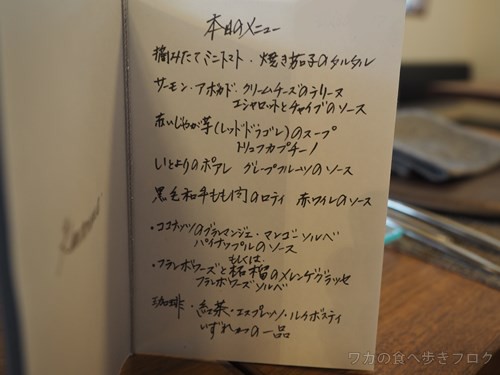 本日のメニュー
摘みたてミニトマト・焼き茄子のタルタル
サーモン・アボカド クリームチーズのテリーヌ
エシャロットとチャイブのソース
赤いじゃが芋(レッドドラゴレ)のスープ
トリュフカプチーノ
いとよりのポアレ グレープフルーツのソース
黒毛和牛もも肉のロティ 赤ワインのソース
・ココナッツのブランマンジェ・マンゴーソルベ
パイナップルのソース
もしくは
・フランボワーズと柘榴のメレンゲグラッセ
フランボワーズソルベ
珈琲・紅茶・エスプレッソ・ルイボスティ
いずれか一品
ワカの食べ歩きブログ